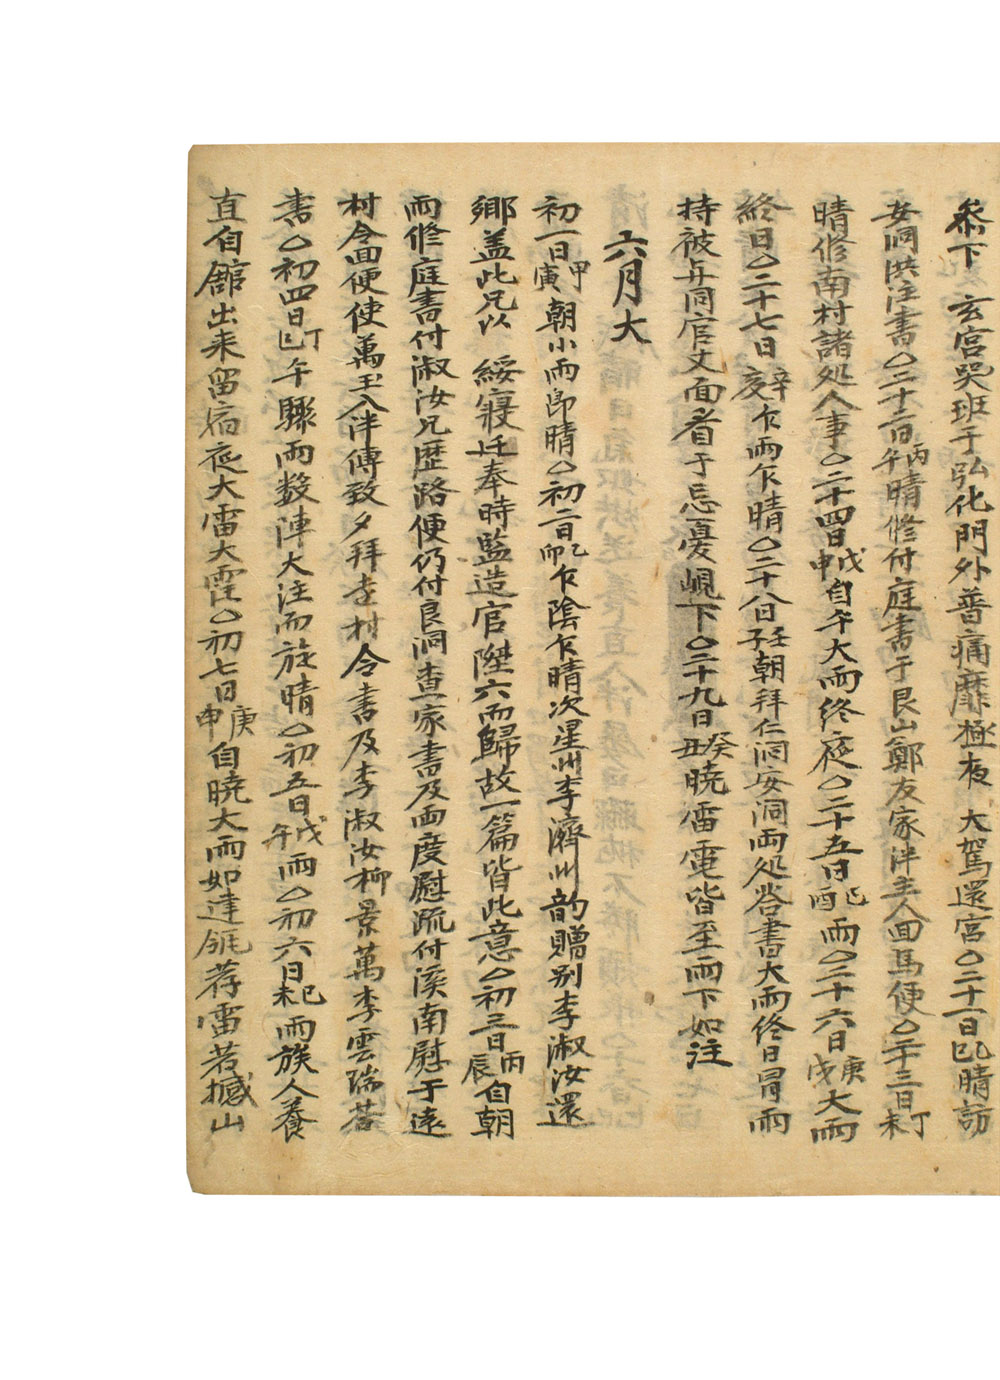 叅下 玄宮哭班于弘化門外普痛靡極夜 大駕還宮〇二十一日乙巳晴訪
安洞洪注書〇二十二日丙午晴修付庭書于艮山鄭友家泮主人回馬便〇二十三日丁未
晴修南村諸処人事〇二十四日戊申自午大雨終夜〇二十五日己酉雨〇二十六日庚戌大雨
終日〇二十七日辛亥乍雨乍晴〇二十八日壬子朝拜仁洞安洞両処答書大雨終日冐雨
持被再同官丈面看于忌憂峴下〇二十九日癸丑曉雷電皆至雨下如注
六月大
初一日甲寅朝小雨卽晴〇初二日乙卯乍陰乍晴次星州李濟州韵贈别李淑汝還
鄉盖此兄以 綏寢迁奉時監造官陞六而歸故一篇皆此意〇初三日丙辰自朝
雨修庭書付淑汝兄歷路便仍付良洞査家書及両度慰疏付溪南慰于遠
村令回便使萬玉入泮傳致夕拜孝村令書及李淑汝柳景萬李雲瑞答
書〇初四日丁巳午驟雨数陣大注而旋晴〇初五日戊午雨〇初六日己未雨族人養
直自館出来留宿夜大雷大電〇初七日庚申自曉大雨如建瓴荐雷若撼山